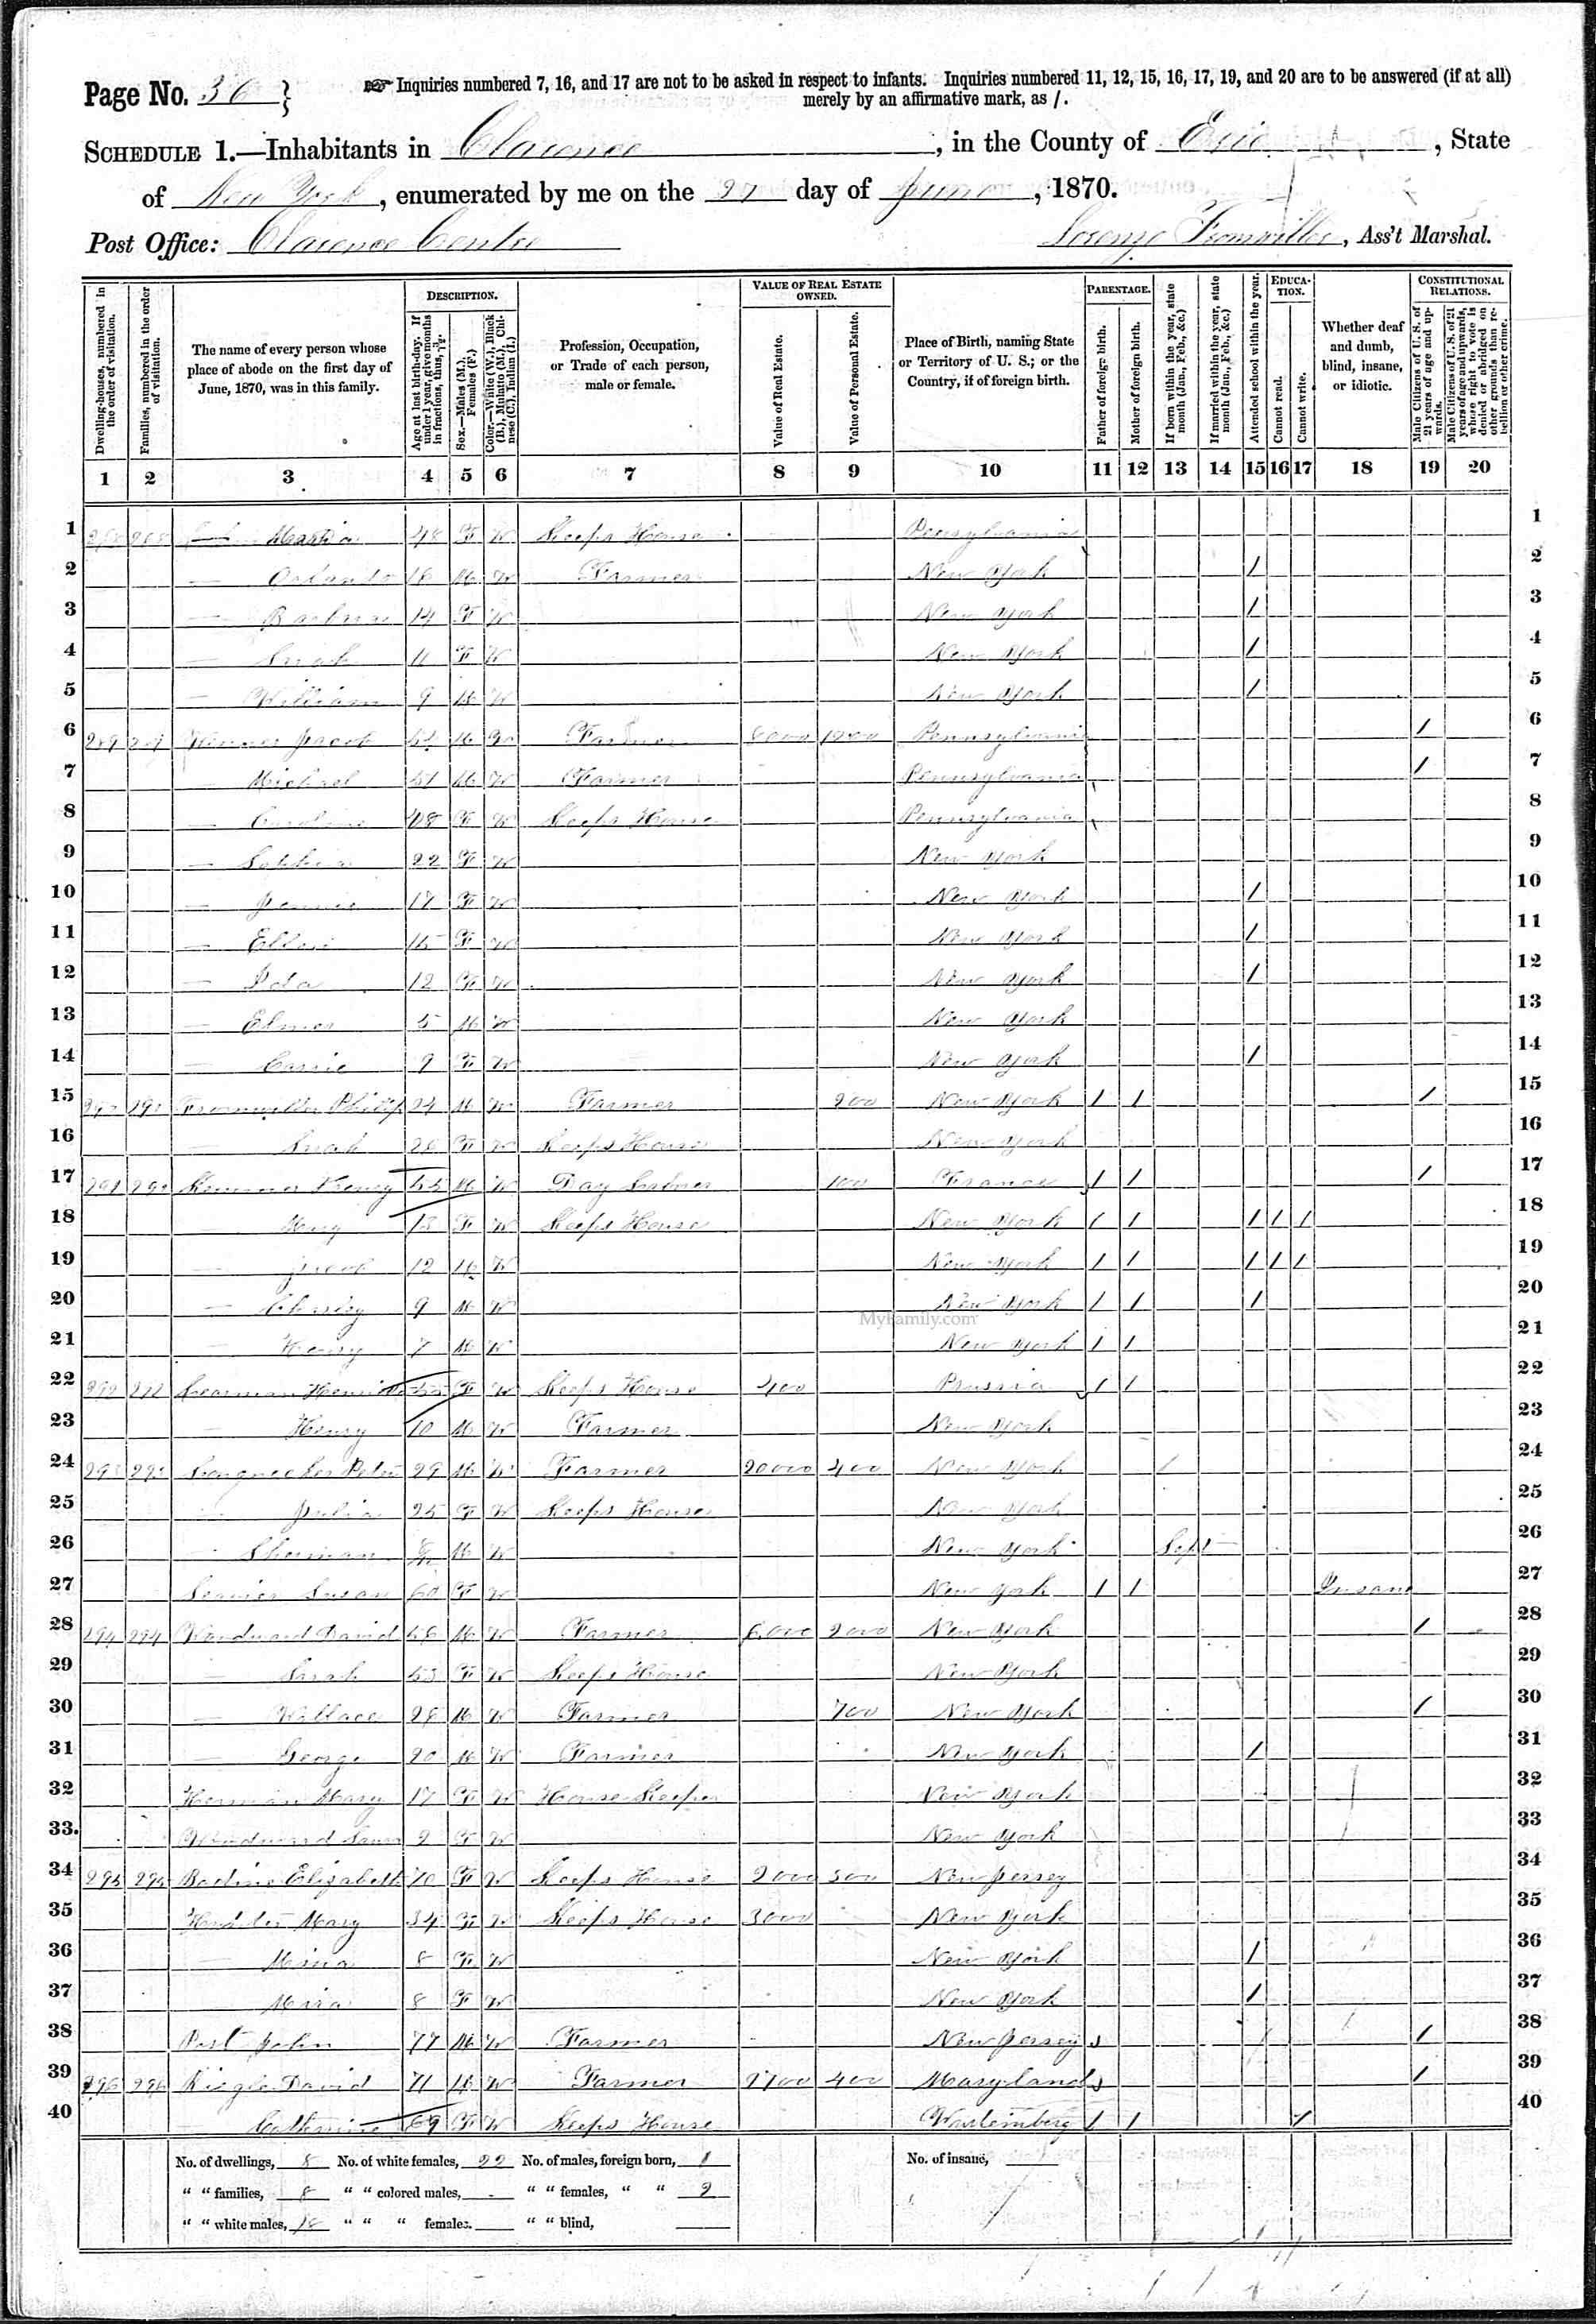 Page No. 36
☞ Inquiries numbered 7, 16, and 17 are not to be asked in respect to infants. Inquiries numbered 11, 12, 15, 16, 17, 19, and 20 are to be answered (if at all)
merely by an affirmative mark, as /.
SCHEDULE 1.—Inhabitants in Clarence, in the County of Erie, State
of New York, enumerated by me on the 27 day of June, 1870.
Post Office: Clarence Centre
Lorenzo Fromviller, Ass't Marshal.
Dwelling-houses, numbered in the order of visitation.
Families, numbered in the order of visitation.
The name of every person whose place of abode on the first day of June, 1870, was in this family.
DESCRIPTION.
Age at last birth-day. If under 1 year, give months in fractions, thus, 3/12.
Sex.—Males (M.), Females (F.)
Color.—White (W.), Black (B.), Mulatto (M.), Chinese (C.), Indian (I.)
Profession, Occupation, or Trade of each person, male or female.
VALUE OF REAL ESTATE OWNED.
Value of Real Estate.
Value of Personal Estate.
Place of Birth, naming State or Territory of U. S.; or the Country, if of foreign birth.
PARENTAGE.
Father of foreign birth.
Mother of foreign birth.
If born within the year, state month (Jan., Feb., &c.)
If married within the year, state month (Jan., Feb., &c.)
Attended school within the year.
EDUCATION.
Cannot read.
Cannot write.
Whether deaf and dumb, blind, insane, or idiotic.
CONSTITUTIONAL RELATIONS.
Male Citizens of U. S. of 21 years of age and upwards.
Male Citizens of U. S. of 21 years of age and upwards, whose right to vote is denied or abridged on other grounds than rebellion or other crime.
1 2 3 4 5 6 7 8 9 10 11 12 13 14 15 16 17 18 19 20
1 — 48 F W Keeps House Pennsylvania 1
2 — Orlando 16 M W Farmer New York / 2
3 — Barbara 14 F W New York / 3
4 — Sarah 11 F W New York / 4
5 — William 9 M W New York / 5
6 289 289 Jacob M W Farmer Pennsylvania / 6
7 — Michael 51 M W Farmer Pennsylvania / 7
8 — Caroline 48 F W Keeps House Pennsylvania 8
9 — 22 F W New York 9
10 — Jennie 17 F W New York / 10
11 — Ellen 15 F W New York / 11
12 — Ida 12 F W New York / 12
13 — Elmer 5 M W New York 13
14 — Carrie 9 F W New York / 14
15 290 290 Fromwiller Philip 24 M W Farmer 200 New York / / / 15
16 — Sarah 26 F W Keeps House New York 16
17 291 291 55 M W Day Laborer 100 France / / / 17
18 — Mary 18 F W Keeps House New York / / / / / 18
19 — Jacob 12 M W New York / / / / / 19
20 — 9 M W New York / / / 20
21 — Henry 7 M W New York / / 21
22 292 292 55 F W Keeps House 400 Prussia / / 22
23 — Henry 10 M W Farmer New York 23
24 293 293 Longnecker Peter 29 M W Farmer 20000 400 New York 24
25 — Julia 25 F W Keeps House New York 25
26 — Sherman M W New York Sept 26
27 Susan 60 F W New York / / Insane 27
28 294 294 Woodward David 56 M W Farmer 6000 2000 New York / 28
29 — Sarah 53 F W Keeps House New York 29
30 — Wallace 28 M W Farmer 700 New York / 30
31 — George 20 M W Farmer New York / 31
32 Herman Mary 17 F W House Keeper New York 32
33 Woodward Laura 2 F W New York 33
34 295 295 Bodine Elizabeth 70 F W Keeps House 2000 500 New Jersey 34
35 Mary 34 F W Keeps House 3000 New York 35
36 — Mina 8 F W New York / 36
37 — Mira 8 F W New York / 37
38 Post John 77 M W Farmer New Jersey / 38
39 296 296 Riegle David 71 M W Farmer 400 Maryland / 39
40 — Catherine 69 F W Keeps House Wurtemberg / / / 40
No. of dwellings, 8 No. of white females, 22 No. of males, foreign born, 1 No. of insane,
" " families, 8 " " colored males, - " " females, " " 2
" " white males, 18 " " " females. " " blind,
MyFamily.com